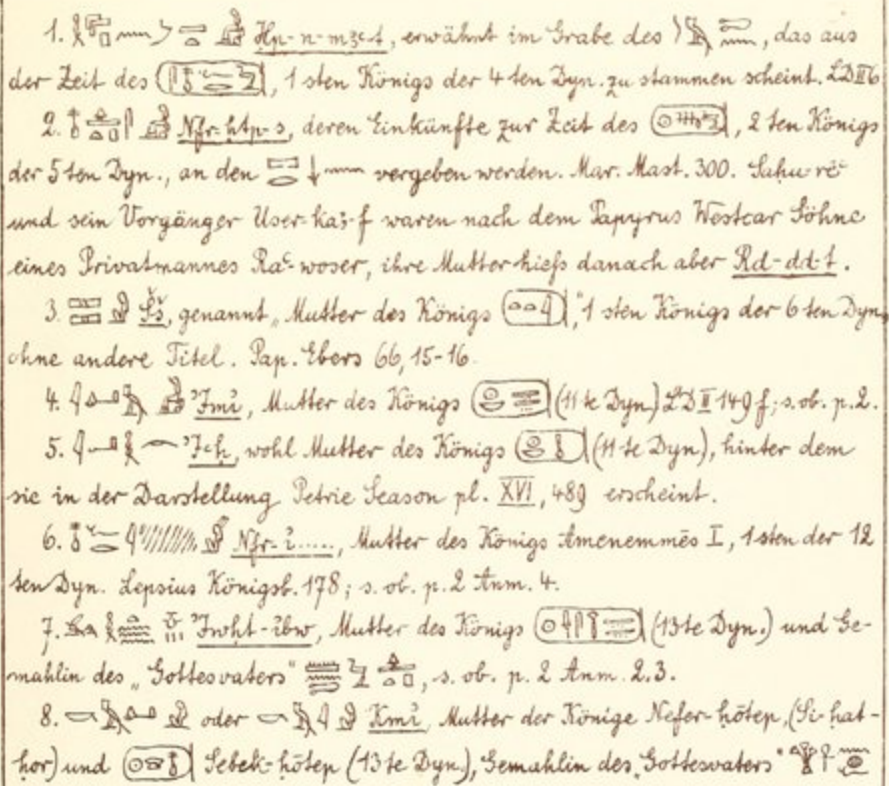 1. Ḥp-n-mꜣꜥ·t, erwähnt im Grabe des , das aus
der Zeit des , 1sten Königs der 4ten Dyn. zu stammen scheint. LD II 6
2. Nfr-ḥtp-s, deren Einkünfte zur Zeit des , 2ten Königs
der 5ten Dyn., an den vergeben werden. Mar. Mast. 300. Sahu-rēꜥ
und sein Vorgänger User-kaꜣ-f waren nach dem Papyrus Westcar Söhne
eines Privatmannes Raꜥ-woser, ihre Mutter hiefs danach aber Rd-dd·t.
3. Šš, genannt „Mutter des Königs “, 1sten Königs der 6ten Dyn.
ohne andere Titel. Pap. Ebers 66, 15-16.
4. ꜣImi̓, Mutter des Königs (11te Dyn.) LD II 149 f; s. ob. p. 2.
5. ꜣIꜥḥ, wohl Mutter des Königs (11te Dyn), hinter dem
sie in der Darstellung Petrie Season pl. XVI, 489 erscheint.
6. Nfr-i̓....., Mutter des Königs Amenemmēs I, 1sten der 12
ten Dyn. Lepsius Königsb. 178; s. ob. p. 2 Anm. 4.
7. ꜣIwḥt-i̓bw, Mutter des Königs (13te Dyn.) und Ge-
mahlin des „Gottesvaters“ , s. ob. p. 2 Anm. 2.3.
8. oder Kmi̓, Mutter der Könige Nefer-ḥōtep, (Si-ḥat-
ḥor) und Sebek-ḥōtep (13te Dyn.), Gemahlin des „Gottesvaters“